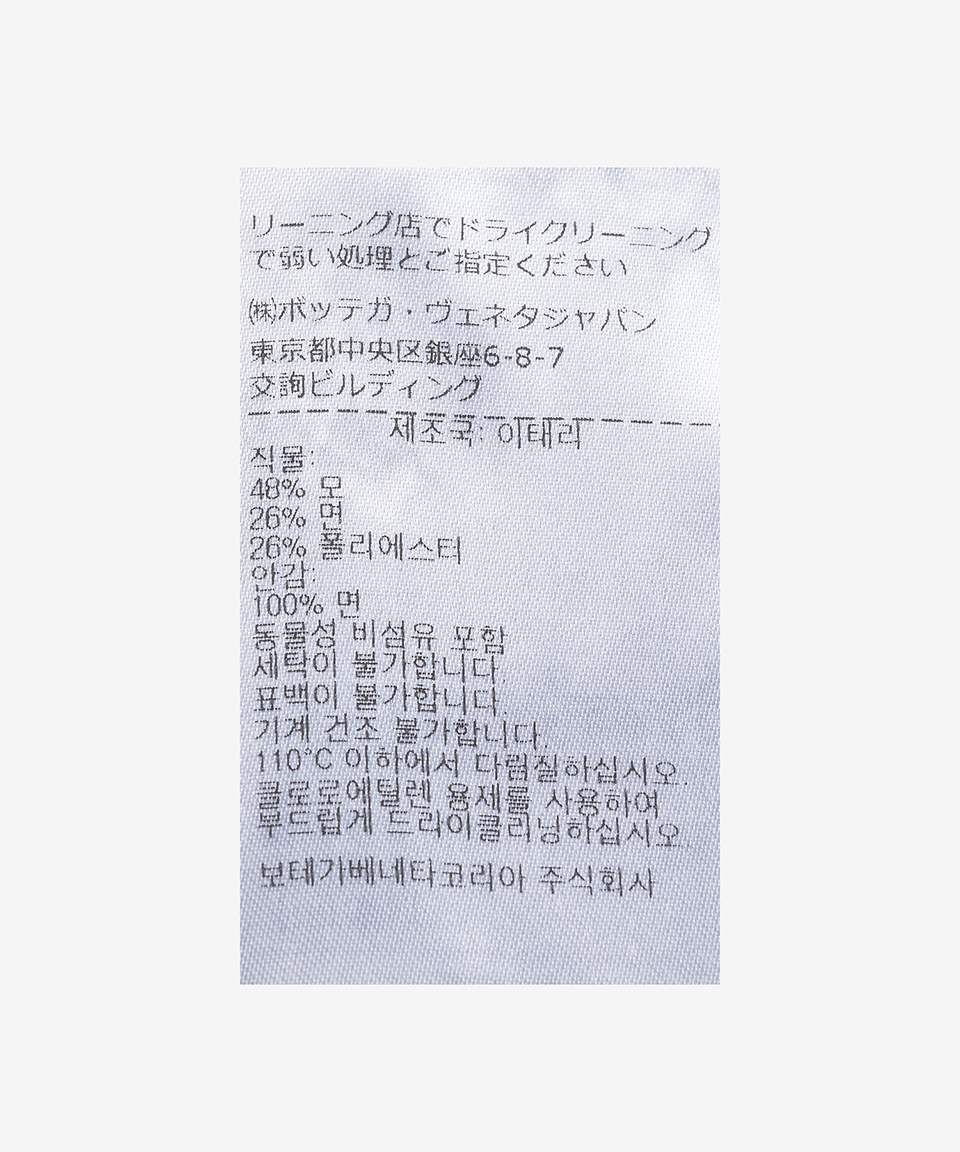 リーニング店でドライクリーニング
で弱い処理とご指定ください
㈱ボッテガ・ヴェネタジャパン
東京都中央区銀座6-8-7
交詢ビルディング
제조국: 이태리
직물:
48% 모
26% 면
26% 폴리에스터
안감:
100% 면
동물성 비섬유 포함
세탁이 불가합니다.
표백이 불가합니다.
기계 건조 불가합니다.
110°C 이하에서 다림질하십시오.
클로로에틸렌 용제를 사용하여
부드럽게 드라이클리닝하십시오.
보테가베네타코리아 주식회사